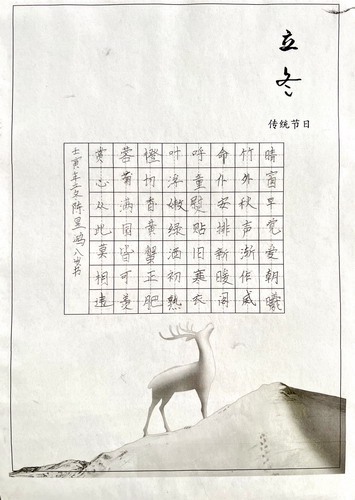 立冬
传统节日
晴窗早觉爱朝曦
竹外秋声渐作威
命仆安排新暖阁
呼童熨贴旧寒衣
叶浮嫩绿酒初熟
橙切香黄蟹正肥
蓉菊满园皆可羡
赏心从此莫相违
壬寅年立冬陈昱鸿八岁书